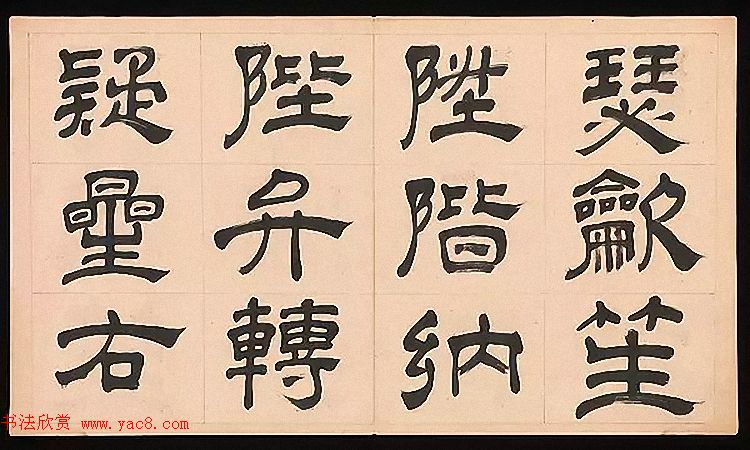 瑟龡笙
陞階納
陛弁轉
疑曐右
书法欣赏 www.yac8.com